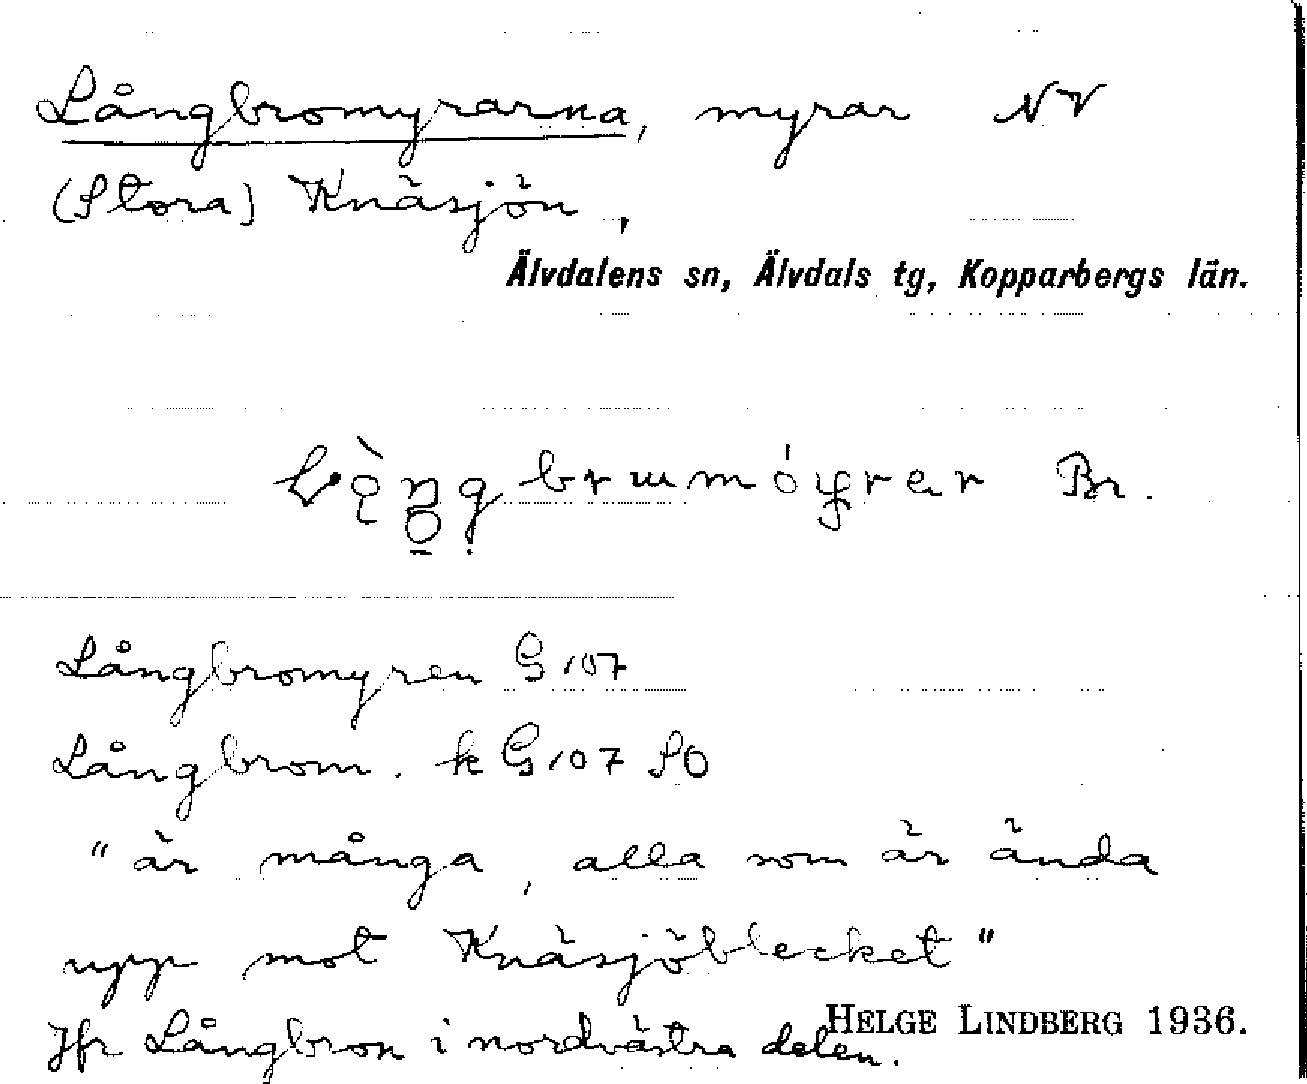 Långbromyrarna, myrar NV
(Stora) Knäsjön,
Älvdalens sn, Älvdals tg, Kopparbergs län.
Br.
Långbromyren G 107
Långbrom. k G 107 SO
"är många, alla som är ända
upp mot Knäsjöblecket"
Jfr Långbron i nordvästra delen.
HELGE LINDBERG 1936.